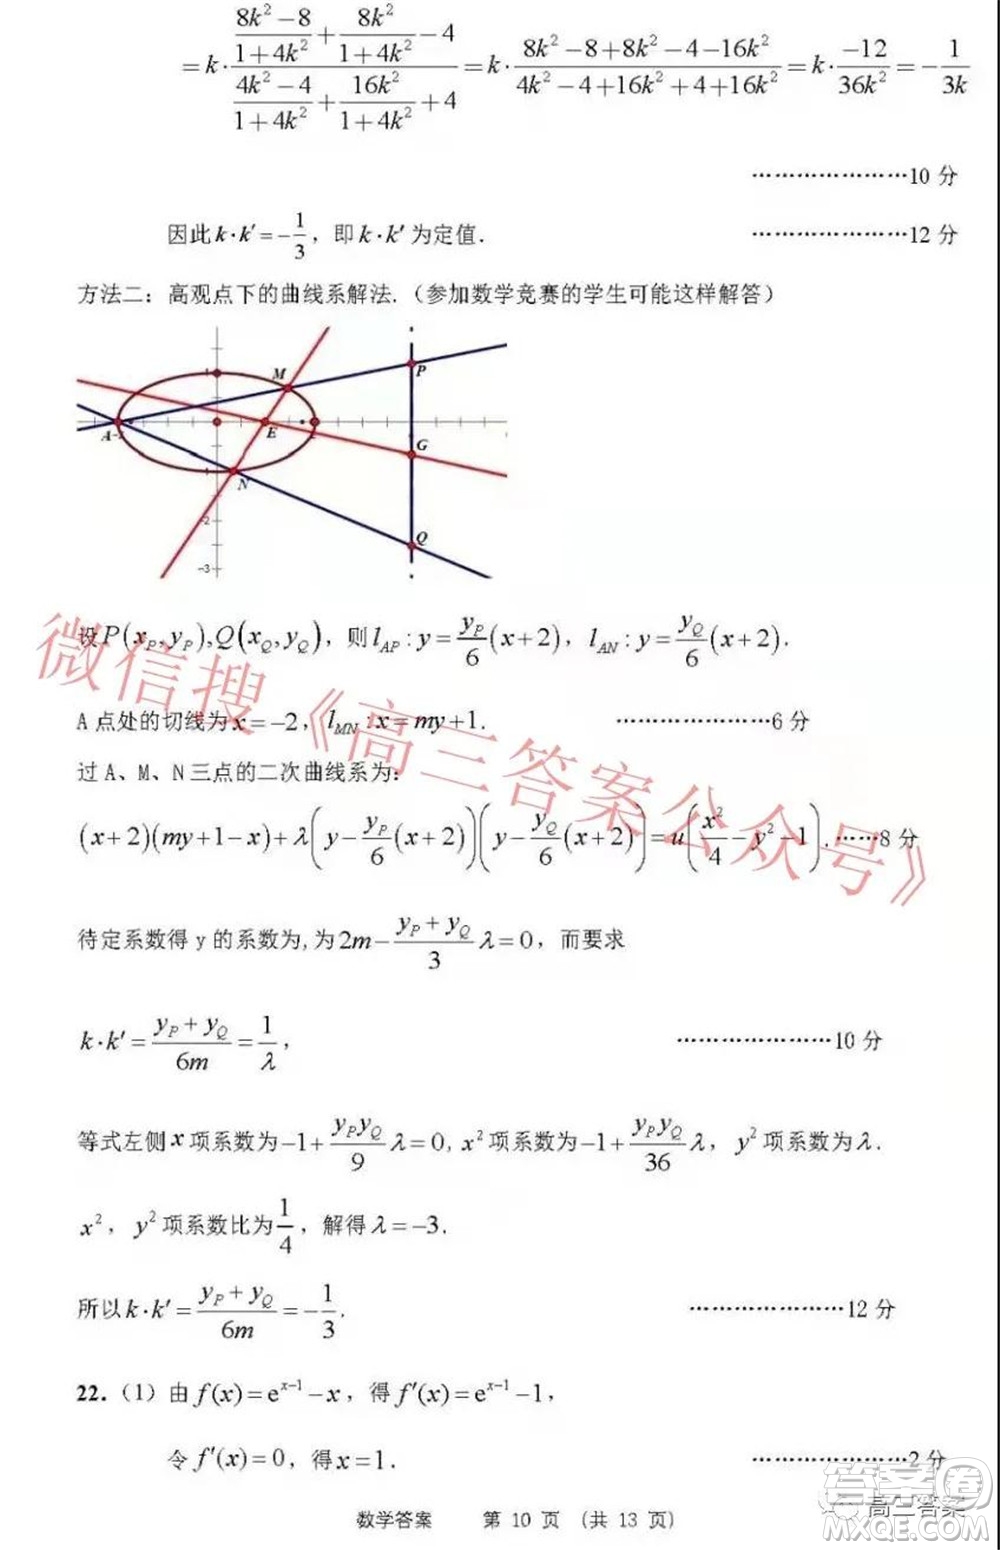 = k · ((8k²−8)/(1+4k²) + 8k²/(1+4k²) − 4)/((4k²−4)/(1+4k²) + 16k²/(1+4k²) + 4) = k · (8k²−8+8k²−4−16k²)/(4k²−4+16k²+4+16k²) = k · (−12)/(36k²) = −1/(3k)
…………………10 分
因此 k·k′=−1/3，即 k·k′ 为定值． …………………12 分
方法二：高观点下的曲线系解法.（参加数学竞赛的学生可能这样解答）
M
P
A
E
G
N
Q
-2
-3
设 P(x_P, y_P), Q(x_Q, y_Q)，则 l_AP : y = y_P/6 (x+2)，l_AN : y = y_Q/6 (x+2)．
A 点处的切线为 x=−2，l_MN : x=my+1． …………………6 分
过 A、M、N 三点的二次曲线系为：
(x+2)(my+1−x)+λ(y−y_P/6 (x+2))(y−y_Q/6 (x+2))=u(x²/4−y²−1). ……8 分
待定系数得 y 的系数为, 为 2m−(y_P+y_Q)/3 λ=0，而要求
k·k′=(y_P+y_Q)/6m=1/λ， …………………10 分
等式左侧 x 项系数为 −1+y_P y_Q/9 λ=0, x² 项系数为 −1+y_P y_Q/36 λ，y² 项系数为 λ．
x²，y² 项系数比为 1/4，解得 λ=−3．
所以 k·k′=(y_P+y_Q)/6m=−1/3． …………………12 分
22.（1）由 f(x)=e^(x−1)−x，得 f′(x)=e^(x−1)−1，
令 f′(x)=0，得 x=1． …………………2 分
数学答案 第 10 页 （共 13 页）
微信搜《高三答案公众号》
高三答案
答案圈
MXQE.COM